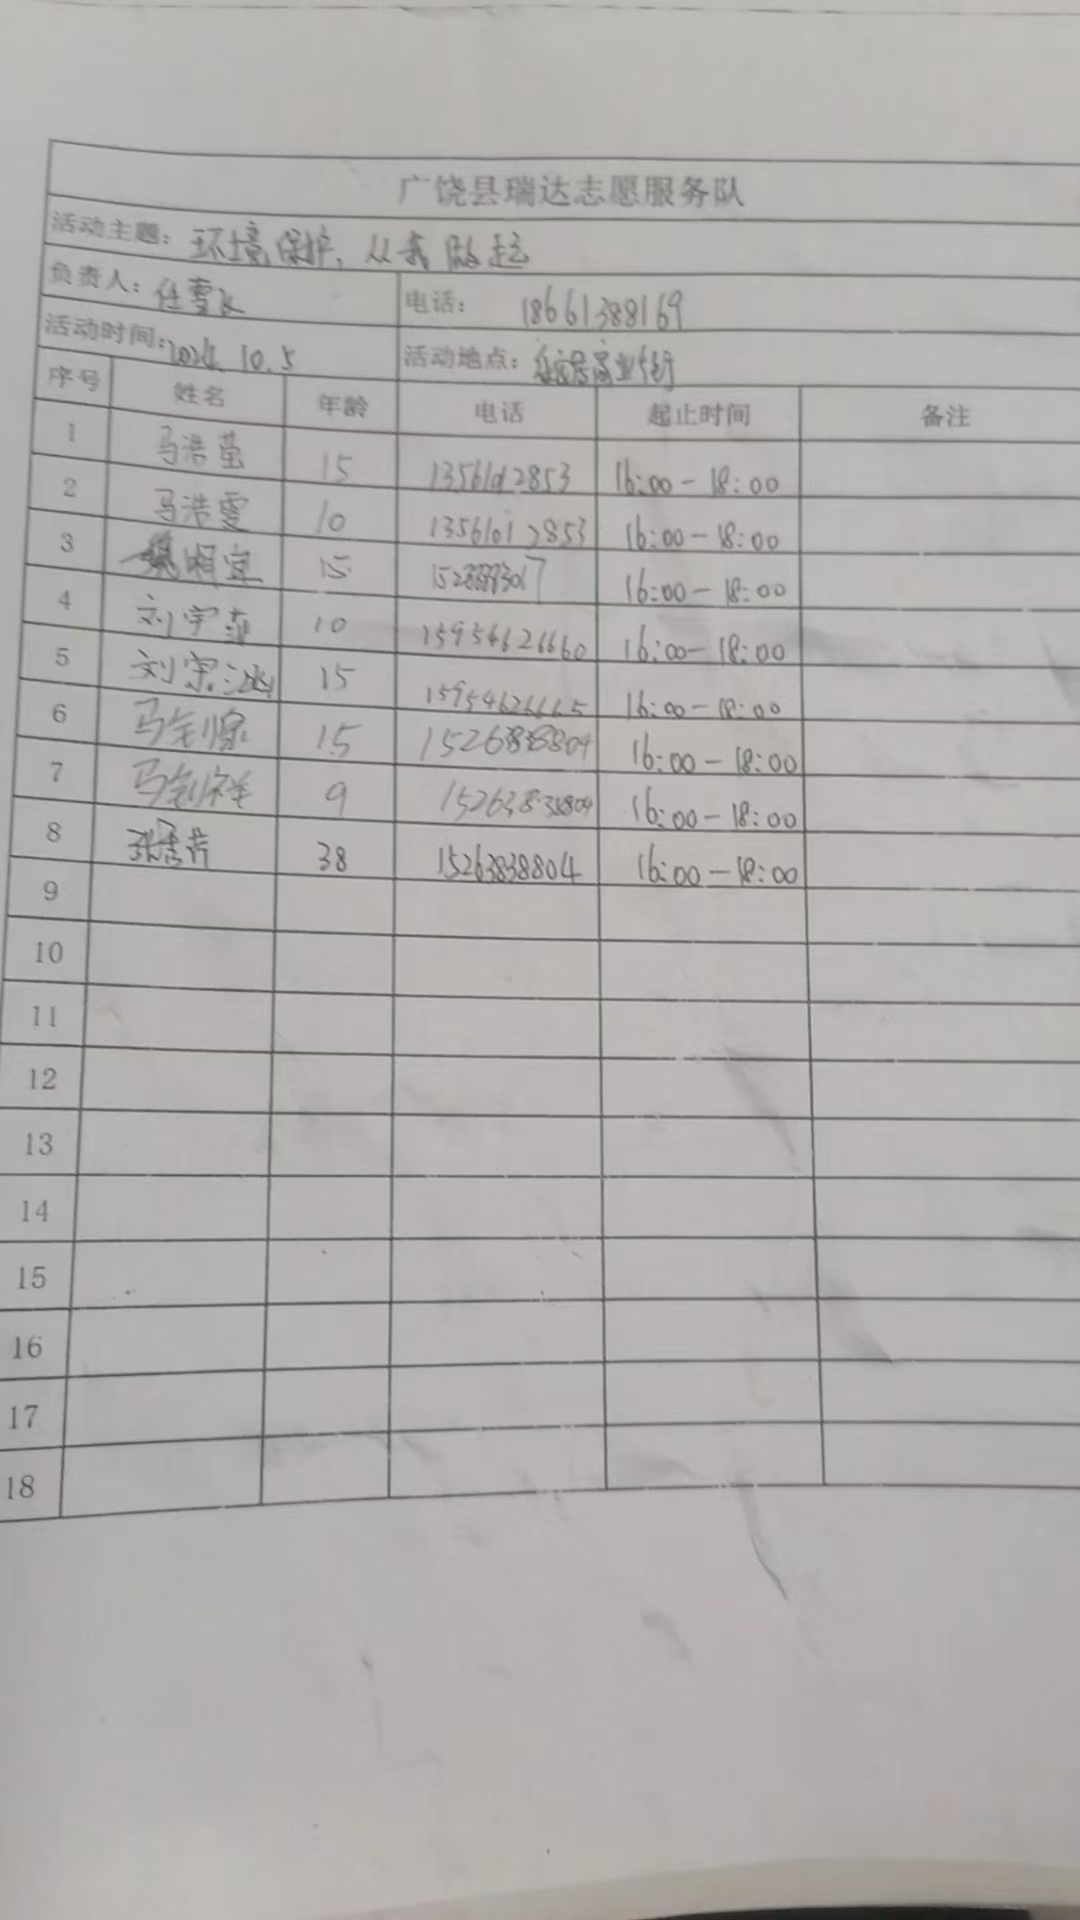 广饶县瑞达志愿服务队
活动主题：环境保护，从我做起
负责人：任雪飞 电话：18661388169
活动时间：2024.10.5 活动地点：商业街
序号 姓名 年龄 电话 起止时间 备注
1 马浩萤 15 13561012853 16:00-18:00
2 马浩雯 10 13561012853 16:00-18:00
3 魏湘宜 15 16:00-18:00
4 刘宇 10 15954626660 16:00-18:00
5 刘宗 15 15954626665 16:00-18:00
6 马钊 15 15263838804 16:00-18:00
7 马钊祥 9 15263838804 16:00-18:00
8 张 38 15263838804 16:00-18:00
9
10
11
12
13
14
15
16
17
18